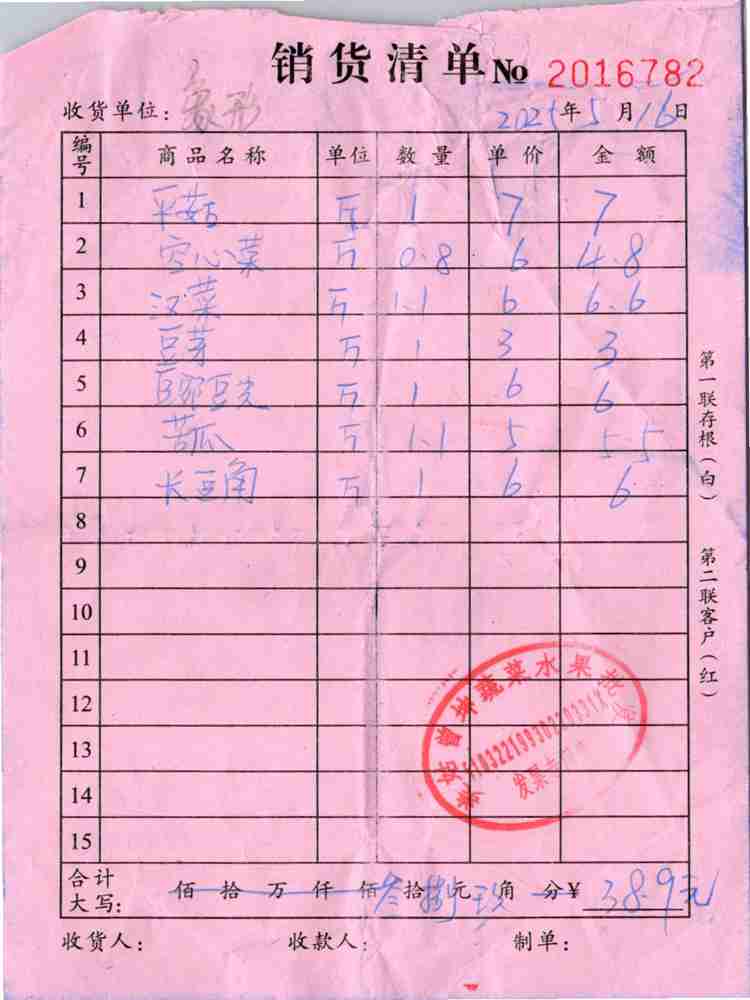 销货清单 № 2016782
收货单位: 象形 2025年5月16日
编号 商品名称 单位 数量 单价 金额
1 平菇 斤 1 7 7
2 空心菜 斤 0.8 6 4.8
3 汉菜 斤 1.1 6 6.6
4 豆芽 斤 1 3 3
5 豌豆尖 斤 1 6 6
6 苦瓜 斤 1.1 5 5.5
7 长豆角 斤 1 6 6
8
9
10
11
12
13
14
15
蔬菜水果批发
发票专用
合计大写: 佰 拾 万 仟 佰 叁拾捌元玖角 分 ¥ 38.9元
收货人: 收款人: 制单:
第一联存根(白)
第二联客户(红)